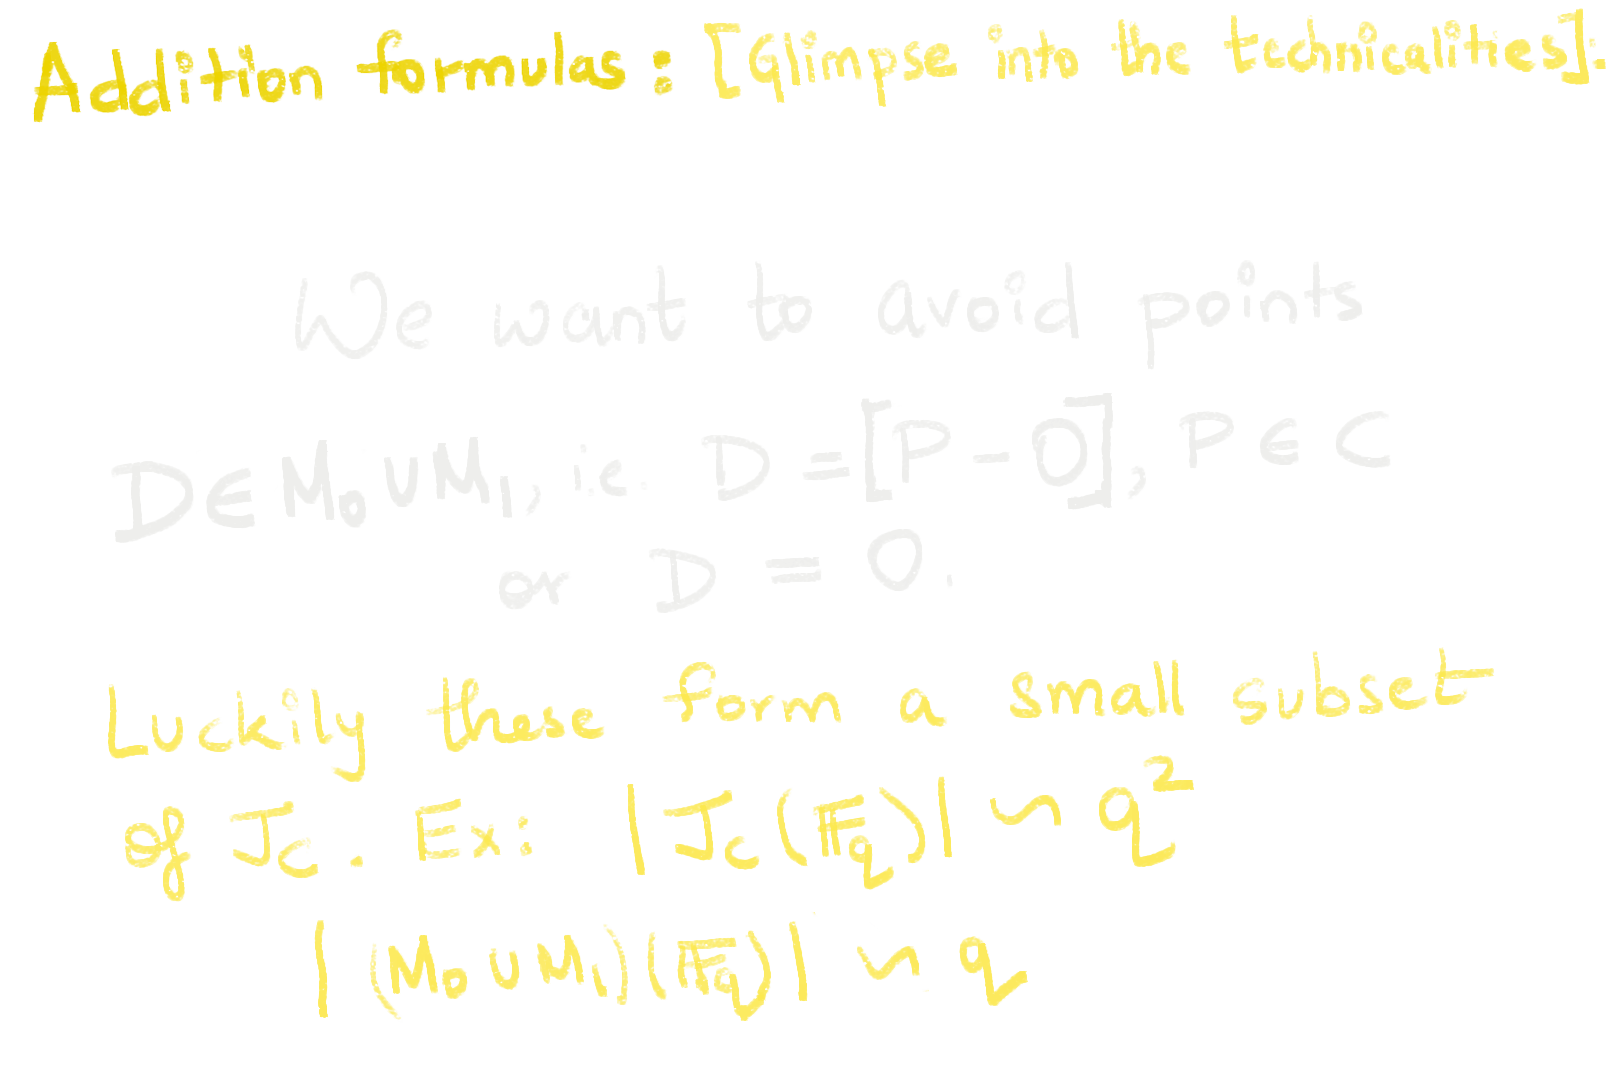 Addition formulas : [Glimpse into the technicalities].
We want to avoid points
D ∈ M₀ ∪ M₁, i.e. D = [P - O], P ∈ C
or D = O.
Luckily these form a small subset
of J_C. Ex: |J_C(𝔽_q)| ~ q²
|(M₀ ∪ M₁)(𝔽_q)| ~ q